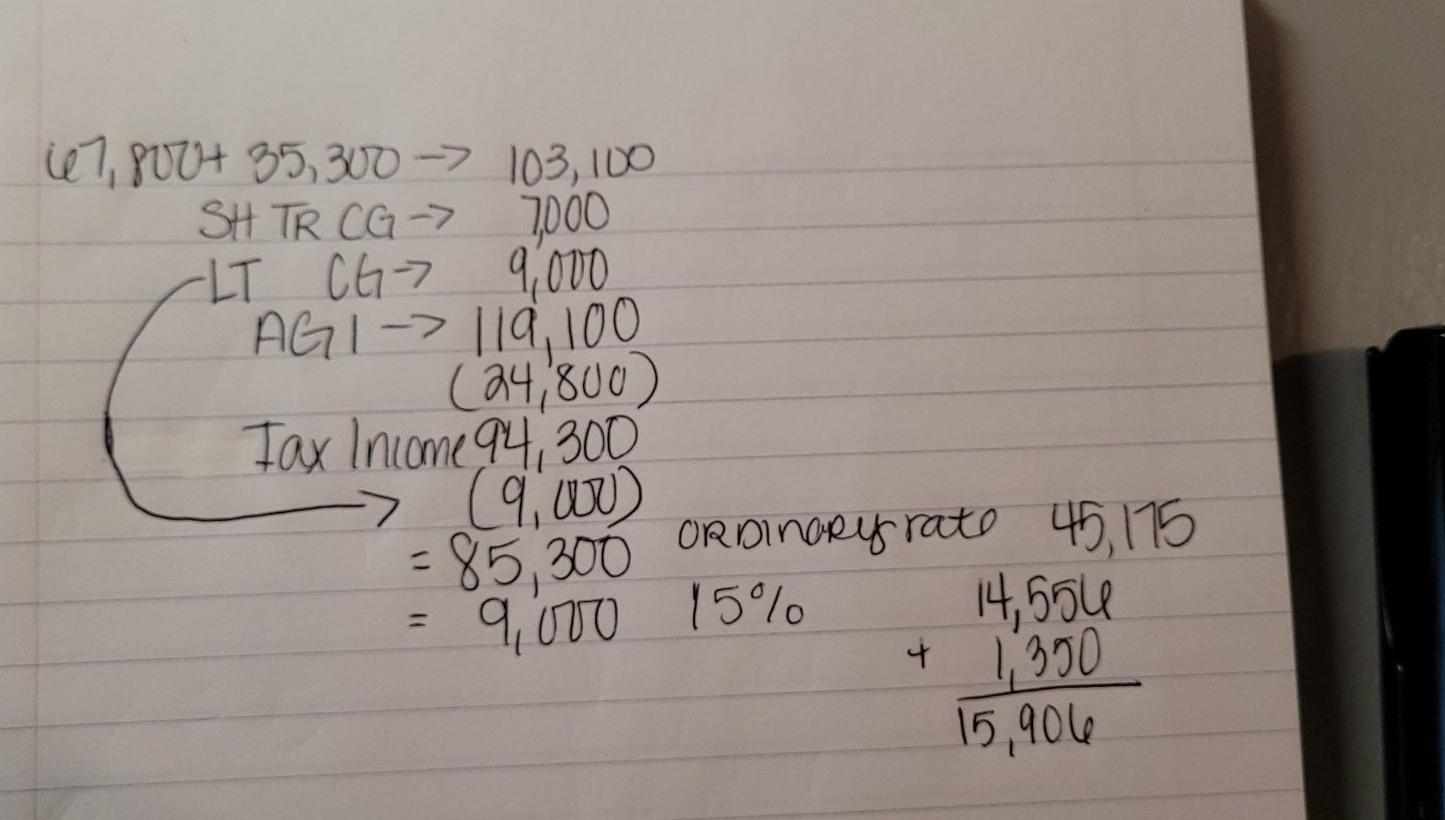 67,800+ 35,300 -> 103,100
SH TR CG -> 7,000
LT CG -> 9,000
AGI -> 119,100
(24,800)
Tax Income 94,300
(9,000)
= 85,300 ORDINARY rate 45,175
= 9,000 15% 14,556
+ 1,350
15,906